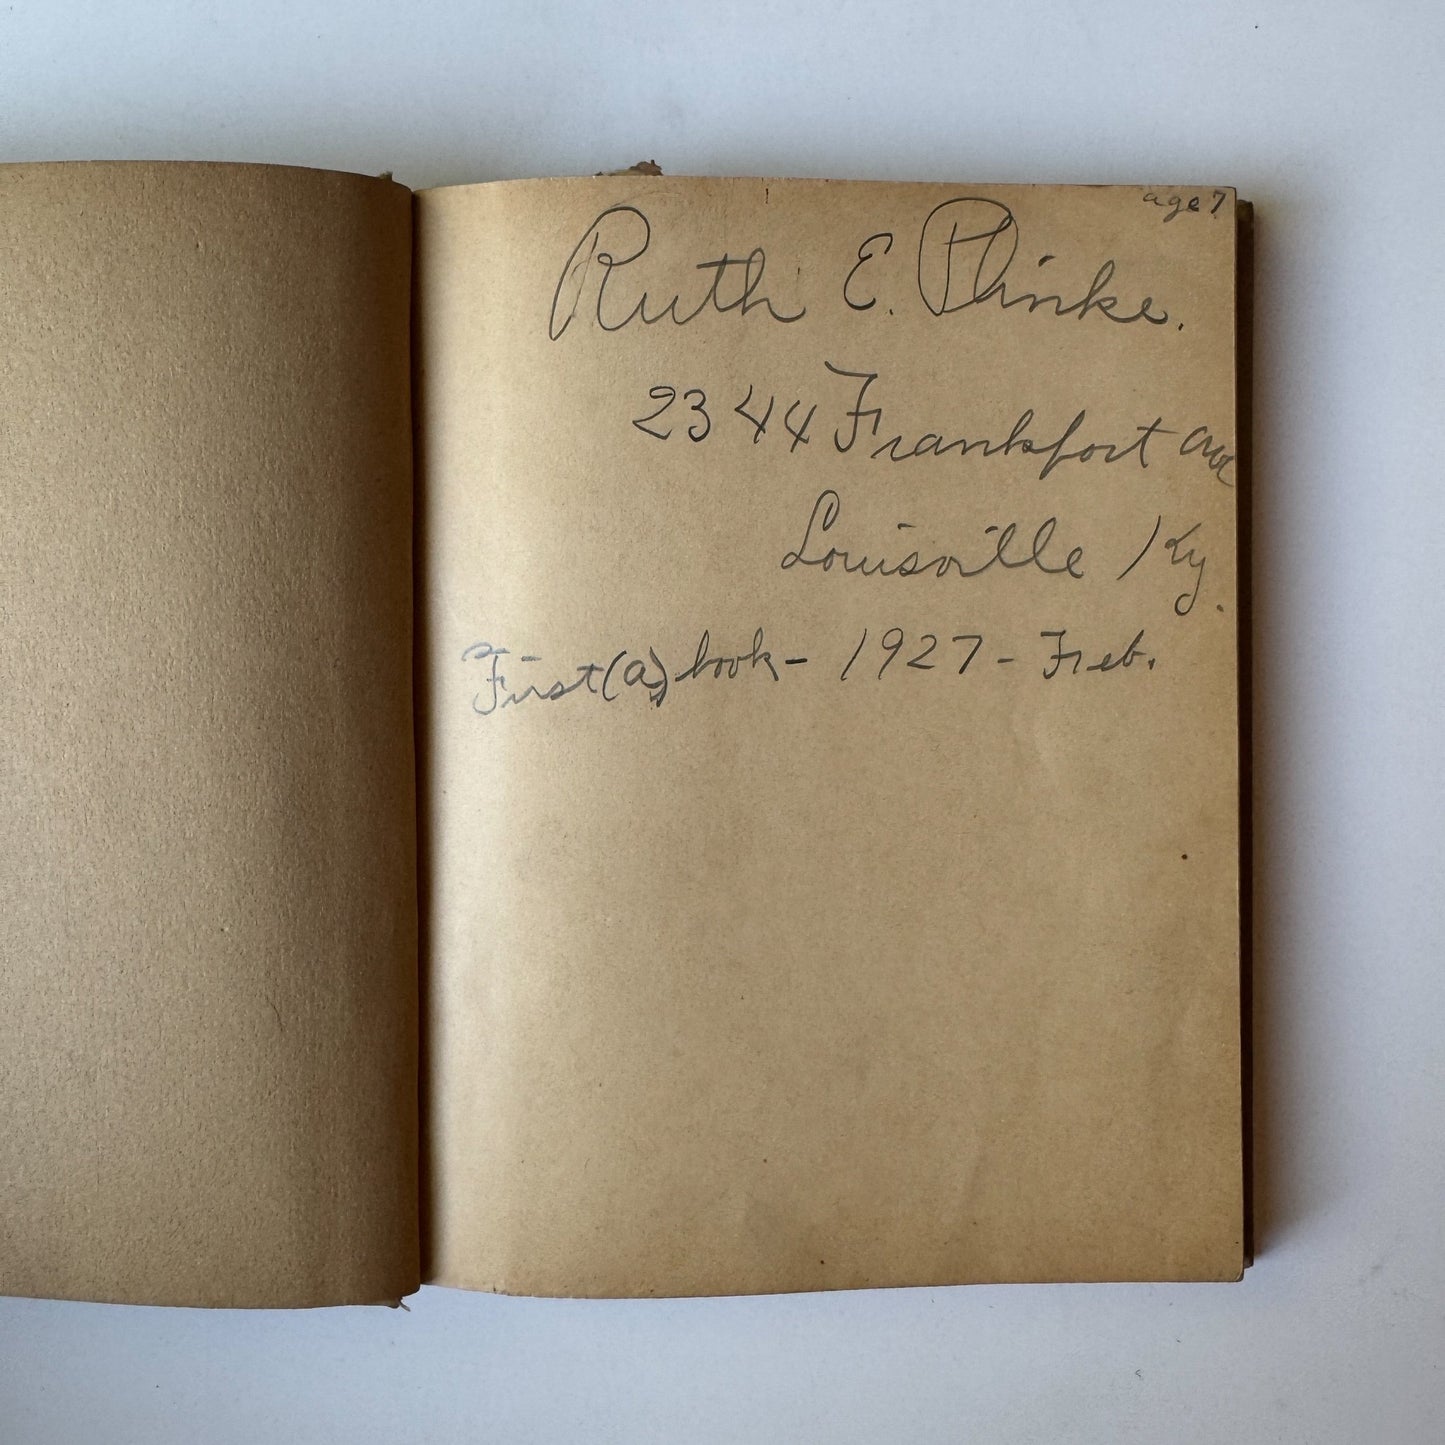 age 7
Ruth E. Plinke.
2344 Frankfort Ave
Louisville Ky.
First (a) book - 1927 - Feb.